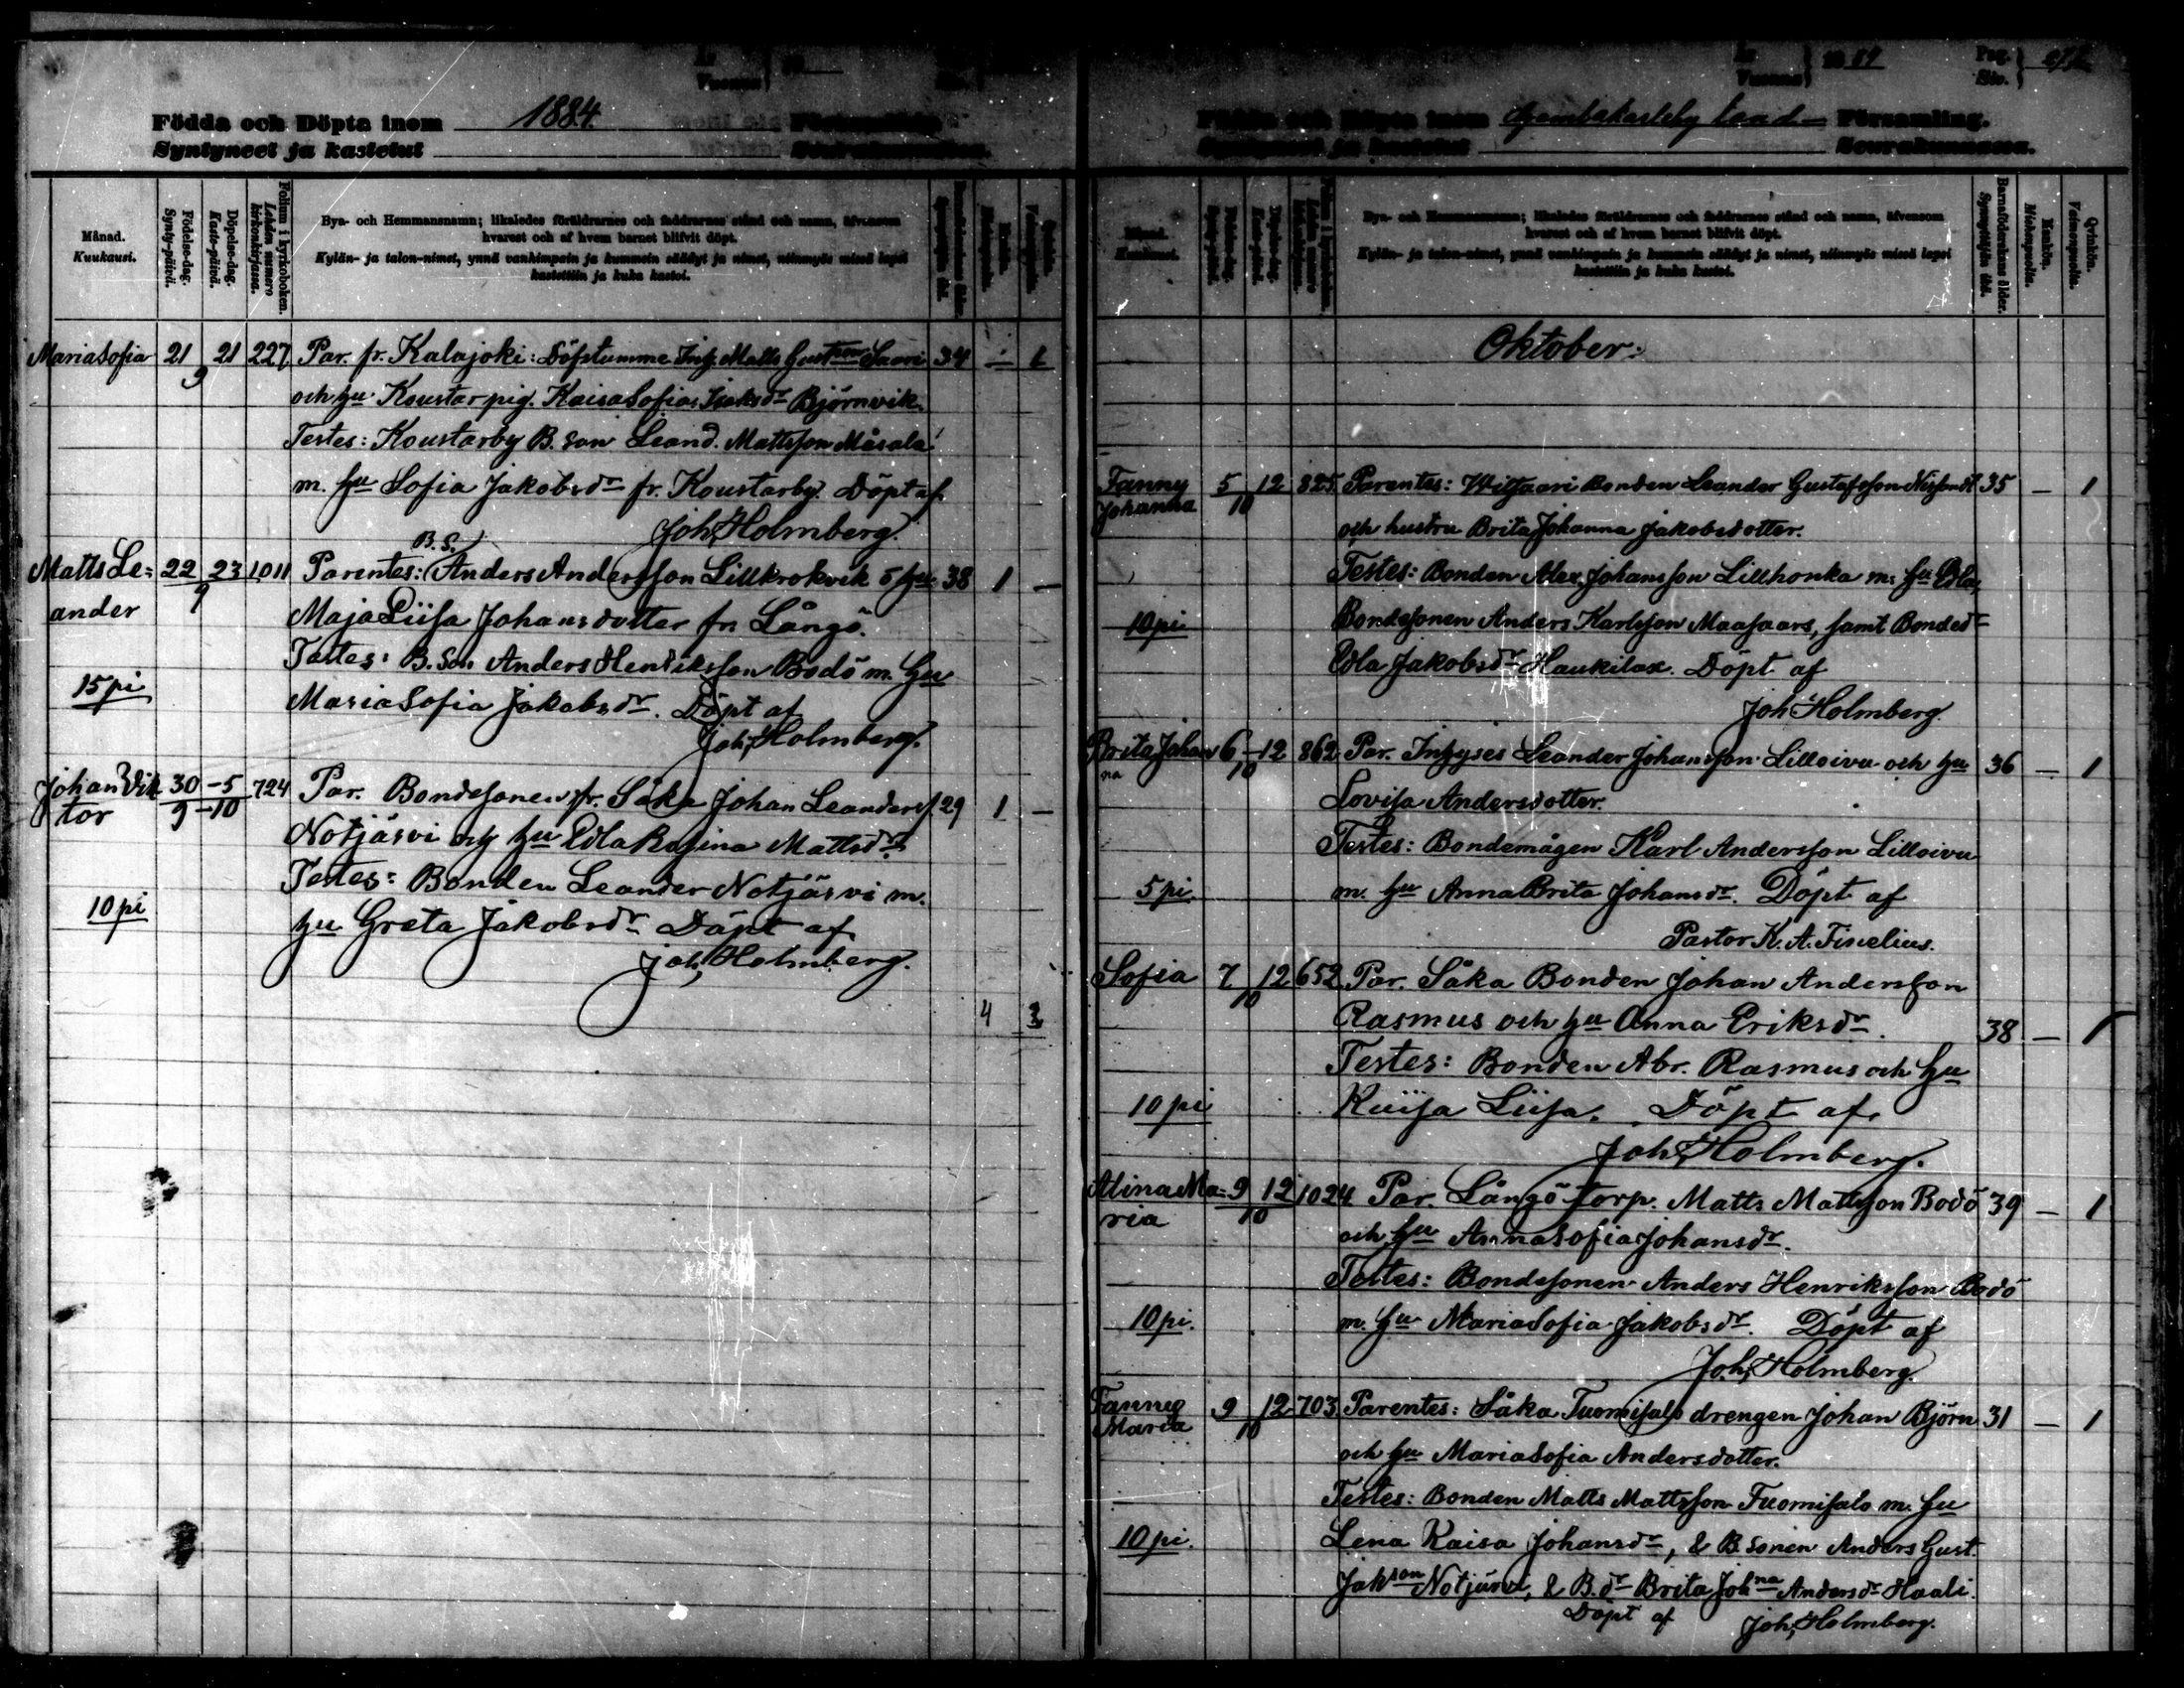 Födda och Döpta inom 1884.
Syntyneet ja kastetut
Månad. Kuukausi.
Födelse-dag. Synty-päivä.
Döpelse-dag. Kaste-päivä.
Folium i kyrkoboken. Lehden numero kirkonkirjassa.
Bya- och Hemmansnamn; likaledes föräldrarnes och faddrarnes stånd och namn, äfvensom
hvarest och af hvem barnet blifvit döpt.
Kylän- ja talon-nimet, ynnä vanhimpain ja kummein säädyt ja nimet, niinmyös missä lapsi
kastettiin ja kuka kastoi.
Maria Sofia 21 21 227 Par. fr. Kalajoki: Döfstumme Matts Gustson Saari 34 — 1
9 och hu Koustar pig. Kaisa Sofia Isaksdr Björnvik.
Testes: Koustarby B. son Leand. Mattsson Måsala
m. hu Sofia Jakobsdr fr. Koustarby. Döpt af
Joh, Holmberg.
B. S.
Matts Le= 22 23 1011 Parentes: Anders Andersson Lillkrokvik o hu 38 1 —
ander 9 Maja Liisa Johansdotter fr. Långö.
Testes: B. Son Anders Henriksson Bodö m. hu
15 pi Maria Sofia Jakobsdr. Döpt af
Joh, Holmberg.
Johan Vik 30 – 5 724 Par. Bondesonen fr. Såka Johan Leanders. 29 1 —
tor 9 – 10 Notjärvi och hu Edla Rosina Mattsdr.
Testes: Bonden Leander Notjärvi m.
10 pi hu Greta Jakobsdr Döpt af
Joh, Holmberg.
4 3
1884 Pag. Siv.
Födda och Döpta inom Gamlakarleby land– Församling.
Syntyneet ja kastetut Seurakunnassa.
Bya- och Hemmansnamn; likaledes föräldrarnes och faddrarnes stånd och namn, äfvensom
hvarest och af hvem barnet blifvit döpt.
Kylän- ja talon-nimet, ynnä vanhimpain ja kummein säädyt ja nimet, niinmyös missä lapsi
kastettiin ja kuka kastoi.
Barnaföderskans ålder. Synnyttäjän ikä.
Mankön. Miehenpuolta.
Qvinkön. Vaimonpuolta.
Oktober:
Fanny 5 12 825 Parentes: Bonden Leander Gustafsson 35 — 1
Johanna 10 och hustru Brita Johanna Jakobsdotter.
Testes: Bonden Alex. Johansson Lillhonka m. hu Edla,
10 pi Bondesonen Anders Karlsson Maasaars, samt Bondedr
Edla Jakobsdr Haukilax. Döpt af
Joh Holmberg.
Brita Johan 6 – 12 862 Par. Inhyses Leander Johansson Lilloivu och hu 36 — 1
na 10 Lovisa Andersdotter.
Testes: Bondemågen Karl Andersson Lilloivu
5 pi. m. hu Anna Brita Johansdr. Döpt af
Pastor K. A. Finelius.
Sofia 7 12 652 Par. Såka Bonden Johan Andersson
10 Rasmus och hu Anna Eriksdr. 38 — 1
Testes: Bonden Abr. Rasmus och hu
10 pi Kaisa Liisa. Döpt af
Joh, Holmberg.
Alina Ma= 9 12 1024 Par. Långö torp. Matts Mattsson Bodö 39 — 1
ria 10 och hu Anna Sofia Johansdr.
Testes: Bondesonen Anders Henriksson Bodö
10 pi. m. hu Maria Sofia Jakobsdr. Döpt af
Joh, Holmberg.
Fanny 9 12 703 Parentes: Såka Tuomisalo drengen Johan Björn 31 — 1
Maria 10 och hu Maria Sofia Andersdotter.
Testes: Bonden Matts Mattsson Tuomisalo m. hu
10 pi. Lena Kaisa Johansdr, & B. sonen Anders Gust.
Jakson Notjärvi, & B. dr Brita Johna Andersdr Haali.
Döpt af Joh, Holmberg.